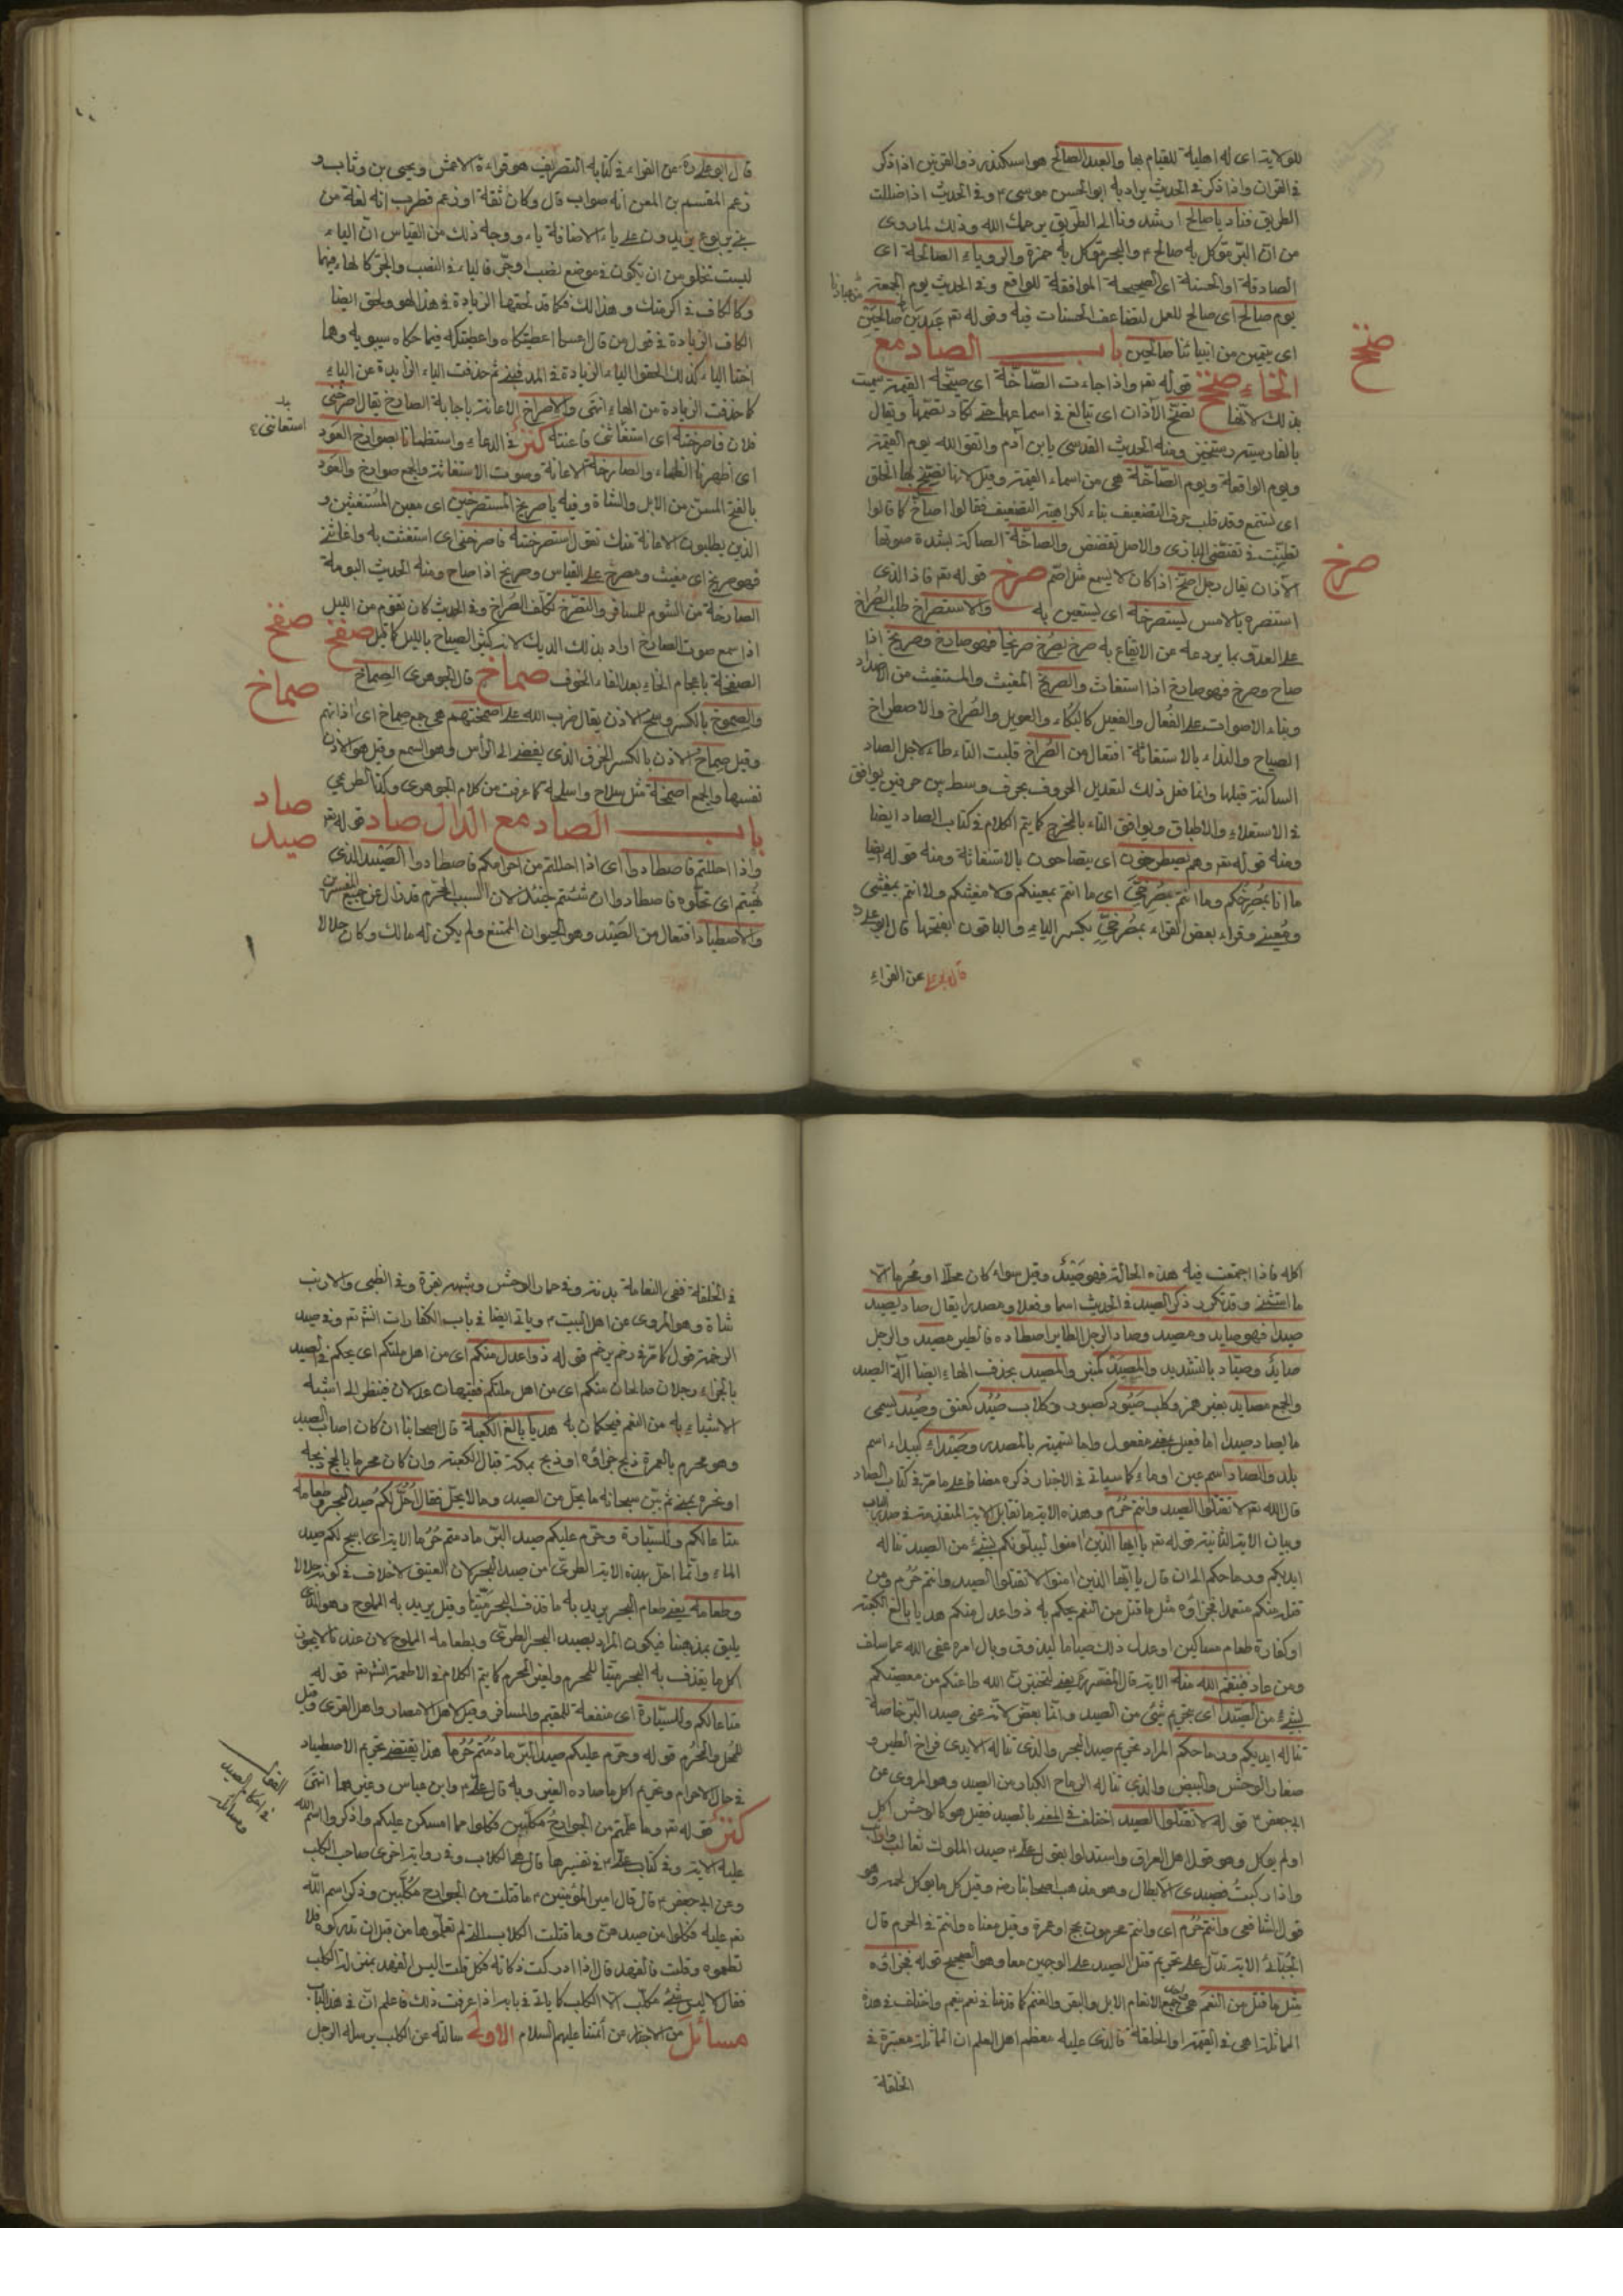 للولاية اى له اهلية للقيام بها والعبد الصالح هو اسكندر ذو القرنين اذا ذكر
فى القران واذا ذكر فى الحديث يراد به ابو الحسن موسى ع وفى الحديث اذا ضللت
الطريق فناد يا صالح ارشدونا الى الطريق يرحمك الله وذلك لما روى
من ان البر موكل به صالح ع والبحر موكل به حمزة والروياء الصالحة اى
الصادقة او الحسنة اى الصحيحة الموافقة للواقع وفى الحديث يوم الجمعة
يوم صالح اى صالح للعمل لتضاعف الحسنات فيه وقوله تعـ عبدين صالحين
اى نبيين من انبيائنا صالحين باب الصاد مع
الخاء صخخ قوله تعـ واذا جاءت الصاخة اى صيحة القيمة سميت
صخخ
بذلك لانها تصخ الآذان اى تبالغ فى اسماعها حتى تكاد تصمها ويقال
ومنه الحديث القدسى يابن آدم واتقو الله يوم القيمة
ويوم الواقعة ويوم الصاخة هى من اسماء القيمة وقيل لانها تصيخ لها الخلق
اى تستمع وقد قلب حرف التضعيف بتاء لكراهية التضعيف فقالوا اصاخ كما قالوا
تظنيت فى تقضى البازى والاصل تقضض والصاخة الصاكة بشدة صوتها
الآذان يقال رجل اصخ اذا كان لا يسمع مثل اصم صرخ قوله تعـ فاذا الذى
صرخ
استنصره بالامس يستصرخه اى يستعين به والاستصراخ طلب الصراخ
على العدو بما يردعه عن الايقاع به صرخ يصرخ صريخا فهو صارخ وصريخ اذا
صاح وصرخ فهو صارخ اذا استغاث والصريخ المغيث والمستغيث من الاضداد
وبناء الاصوات على الفعال والفعيل كالبكاء والعويل والصراخ والاصطراخ
الصياح والنداء بالاستغاثة افتعال من الصراخ قلبت التاء طاء لاجل الصاد
الساكنة قبلها وانما فعل ذلك لتعديل الحروف بحرف وسط بين حرفين يوافق
فى الاستعلاء والاطباق ويوافق التاء بالمخرج كما يتم الكلام فى كتاب الصاد ايضا
ومنه قوله تعـ وهم يصطرخون اى يتصاحون بالاستغاثة ومنه قوله ايضا
ما انا بمصرخكم وما انتم بمصرخى اى ما انتم بمعينكم ولا مغيثكم ولا انتم بمغيثى
ومعينى وقراء بعض القراء بمصرخى بكسر الياء والباقون بفتحها قال ابو على
عن الفراء
قال ابو على عن الفراء فى كتابه التصريف هو قراءة الاعمش ويحيى بن وثاب و
زعم القسم بن المعن انه صواب قال وكان ثقة او زعم قطرب انه لغة من
بنى يربوع يزيدون على ياء الاضافة ياء ووجه ذلك من القياس ان الياء
ليست تخلو من ان يكون فى موضع نصب او جر فالياء فى النصب والجر كالهاء فيهما
وكالكاف فى اكرمتك وهذا لك فكما قد لحقها الزيادة فى هذا لهو ولحق ايضا
الكاف الزيادة فى قول من قال اعطيتكاه واعطيتكيه فيما حكاه سيبويه وهما
اختا الياء كذلك الحقوا الياء الزيادة فى المد ثم حذفت الياء الزايدة عن الياء
كما حذفت الزيادة من الهاء انتهى والاصراخ الاعانة باجابة الصارخ يقال اصرخنى
فلان فاصرخته اى استغاثنى فاعنته كنز فى الدعاء واستظمانا بصوارخ العود
استغاثنى
اى اظهرنا الظماء والصارخة الاعانة وصوت الاستغاثة والجمع صوارخ والعود
بالفتح المسن من الابل والشاة وفيه يا صريخ المستصرخين اى معين المستغيثين و
الذين يطلبون الاعانة منك تقول استصرخته فاصرخنى اى استغثت به واغاثنى
فهو صريخ اى مغيث ومصرخ على القياس وصريخ اذا صاح ومنه الحديث البومة
الصارخة من الشوم للمسافر والتصرخ تكلف الصراخ وفى الحديث كان يقوم من الليل
اذا سمع صوت الصارخ اراد بذلك الديك لانه كثير الصياح بالليل كما قيل صفخ
صفخ
الصفخة باعجام الخاء بعد الفاء الخوف صماخ قال الجوهرى الصماخ
صماخ
والصموخ بالكسر وسخ الاذن يقال ضرب الله على اصمختهم هى جمع صماخ اى اذانهم
وقيل صماخ الاذن بالكسر الخرق الذى يفضى الى الرأس وهو السمع وقيل هو الاذن
نفسها والجمع اصمخة مثل سلاح واسلحة كما عرفت من كلام الجوهرى وكذا الطريحى
باب الصاد مع الدال صاد قوله تعـ
صاد
صيد
واذا احللتم فاصطادوا اى اذا احللتم من احرامكم فاصطادوا الصيد الذى
نهيتم اى تحلوه فاصطادوا ان شئتم حينئذ لان السبب المحرم قد زال عن جميع المفسرين
والاصطياد افتعال من الصيد وهو الحيوان الممتنع ولم يكن له مالك وكان حلالا
اكله فاذا اجتمعت فيه هذه الحالة فهو صيد وقيل سواء كان محللا او محرما الا
ما استثنى وقد تكرر ذكر الصيد فى الحديث اسما وفعلا ومصدرا يقال صاد يصيد
صيدا فهو صايد ومصيد وصاد الرجل الطاير اصطاده فالطير مصيد والرجل
صايد وصياد بالتشديد والمصيد كمنبر والمصيد بحذف الهاء ايضا آلة الصيد
والجمع مصايد بغير همز وكلب صيود كصبور وكلاب صيد كعنق وصيد يسمى
ما يصاد صيدا اما فعيل بمعنى مفعول واما تسمية بالمصدر وصيداء كبيداء اسم
بلد والصاد اسم عين او ماء كما سياتى فى الاخبار ذكره مضافا على ما مر فى كتاب الصاد
قال الله تعـ لا تقتلوا الصيد وانتم حرم وهذه الاية ما تقابل الاية المتقدمة فى صدر الباب
وبيان الاية الثانية قوله تعـ يا ايها الذين امنوا ليبلونكم بشىء من الصيد تناله
ايديكم ورماحكم الى ان قال يا ايها الذين امنوا لا تقتلوا الصيد وانتم حرم ومن
قتل منكم متعمدا فجزاؤه مثل ما قتل من النعم يحكم به ذوا عدل منكم هديا بالغ الكعبة
او كفارة طعام مساكين او عدل ذلك صياما ليذوق وبال امره عفى الله عما سلف
ومن عاد فينتقم الله منه الاية قال المفسر يعنى لتختبرن الله طاعتكم من معصيتكم
بشىء من الصيد اى بتحريم شىء من الصيد وانما بعض لانه عنى صيد البر خاصة
تناله ايديكم ورماحكم المراد تحريم صيد البحر والذى تناله الايدى فراخ الطير و
صغار الوحش والبيض والذى تناله الرماح الكبار من الصيد وهو المروى عن
ابى جعفر ع قوله لا تقتلوا الصيد اختلف فى المعنى بالصيد فقيل هو كالوحش اكل
او لم يوكل وهو قول اهل العراق واستدلوا بقول على ع صيد الملوك ثعالب وارانب
واذا ركبت فصيدى الابطال وهو مذهب اصحابنا رض وقيل كل ما يوكل لحمه وهو
قول الشافعى وانتم حرم اى وانتم محرمون بحج او عمرة وقيل معناه وانتم فى الحرم قال
الجبائى الاية تدل على تحريم قتل الصيد على الوجهين معا وهو الصحيح قوله فجزاؤه
مثل ما قتل من النعم هى جميع الانعام الابل والبقر والغنم كما عرفنا فى نعم ينعم واختلف فى هذه
المماثلة اهى فى القيمة او الخلقة فالذى عليه معظم اهل العلم ان المماثلة معتبرة فى
الخلقة
فى الخلقة ففى النعامة بدنة وفى حمار الوحش وشبهه بقرة وفى الظبى والارنب
شاة وهو المروى عن اهل البيت ع وياتى ايضا فى باب الكفارات انشـ تعـ وفى صيد
الرخمة قول كما مر فى رخم يرخم قوله ذوا عدل منكم اى من اهل ملتكم اى يحكم فى الصيد
بالجزاء رجلان صالحان منكم اى من اهل ملتكم فقيهان عدلان فينظر الى اشبه
الاشياء به من النعم فيحكمان به هديا بالغ الكعبة قال اصحابنا ان كان اصاب الصيد
وهو محرم بالعمرة ذبح جزاؤه او ذبح بمكة قبال الكعبة وان كان محرما بالحج ذبحه
او نحره بمنى ثم بين سبحانه ما يحل من الصيد وما لا يحل فقال احل لكم صيد البحر وطعامه
متاعا لكم وللسيارة وحرم عليكم صيد البر ما دمتم حرما الاية اى ابيح لكم صيد
الماء وانما احل بهذه الاية الطرى من صيد البحر لان العتيق لا خلاف فى كونه حلالا
وطعامه يعنى طعام البحر يريد به ما قذف البحر ميتا وقيل يريد به الملوح وهو الذى
يليق بمذهبنا فيكون المراد بصيد البحر الطرى وبطعامه الملوح لان عندنا لا يجوز
اكل ما يقذف به البحر ميتا للمحرم ولغير المحرم كما يتم الكلام فى الاطعمة انشـ تعـ قوله
متاعا لكم وللسيارة اى منفعة للمقيم والمسافر وقيل لاهل الامصار واهل القرى وقيل
للمحل والمحرم قوله وحرم عليكم صيد البر ما دمتم حرما هذا يقتضى تحريم الاصطياد
فى حال الاحرام وتحريم اكل ما صاده الغير وبه قال على ع وابن عباس وغيرهما انتهى
كنز قوله تعـ وما علمتم من الجوارح مكلبين فكلوا مما امسكن عليكم واذكروا اسم الله
عليه الاية وفى كتاب على ع فى تفسيرها قال هما الكلاب وفى رواية اخرى صاحب الكلب
وعن ابى جعفر ع قال قال امير المؤمنين ع ما قتلت من الجوارح مكلبين وذكر اسم الله
تعـ عليه فكلوا من صيدهن وما قتلت الكلاب التى لم تعلموها من قبل ان تدركوه فلا
تطعموه وقلت فالفهد قال اذا ادركت ذكاته فكل قلت اليس الفهد بمنزلة الكلب
فقال لا ليس شىء مكلب الا الكلب كما ياتى فى بابه اذا عرفت ذلك فاعلم ان فى هذا الباب
مسائل من الاخبار عن ائمتنا عليهم السلام الاولى سالته عن الكلب يرسله الرجل